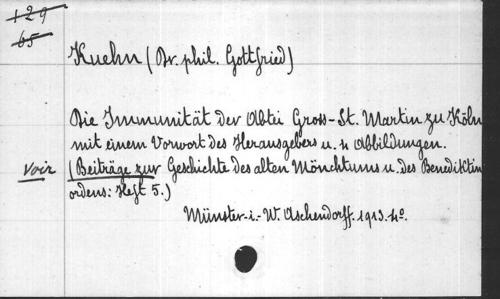 129
65
Kuehn (Dr. phil. Gottfried)
Die Immunität der Abtei Gross-St. Martin zu Köln
mit einem Vorwort des Herausgebers u. 4 Abbildungen.
voir (Beiträge zur Geschichte des alten Mönchtums u. des Benediktiner
ordens: Heft 5.)
Münster-i.-W. Aschendorff. 1913. 4o.